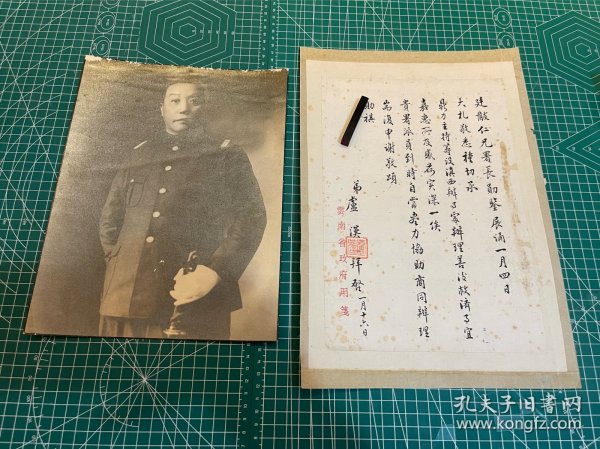 廷黻仁兄署長勛鑒展誦一月四日
大札敬悉種切承
鼎力主持籌設滇西辦了家辦理善後救濟事宜
嘉惠所及感荷實深一俟
貴署派員到時自當盡力協助商同辦理
耑復申謝敬頌
勛祺
弟盧漢拜啓一月十六日
雲南省政府用箋
孔夫子旧书网
www.kongfz.com